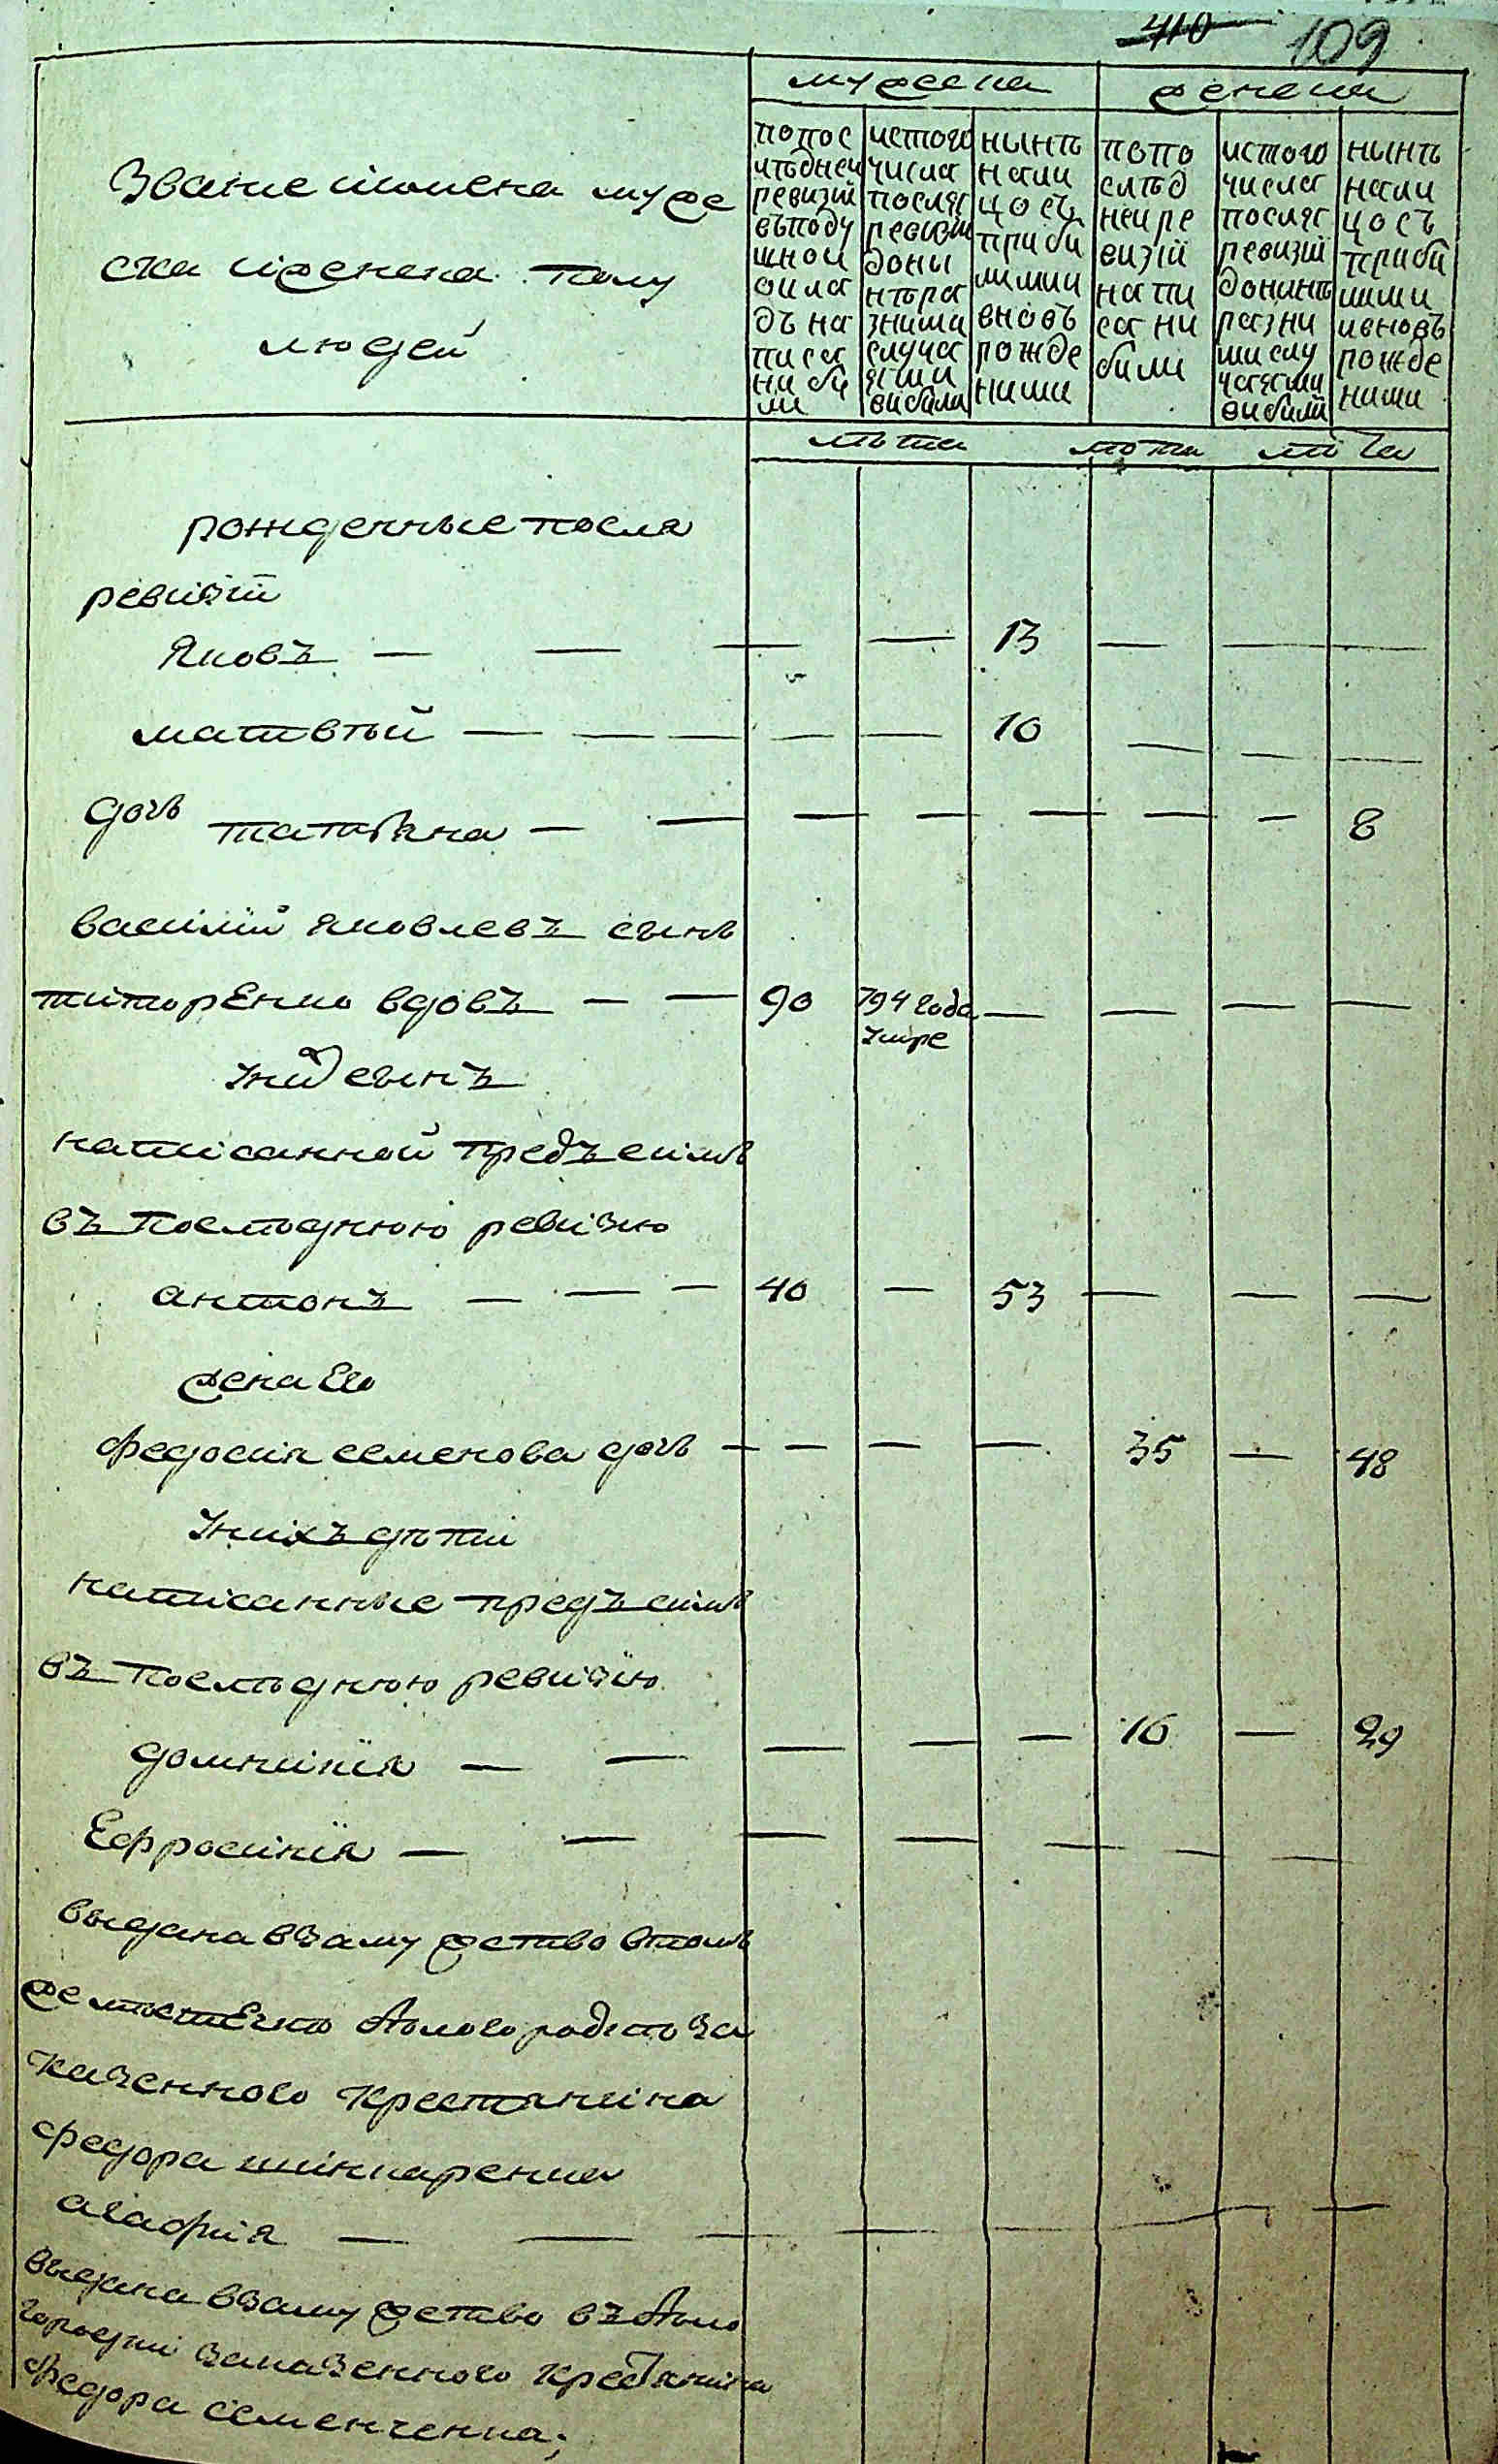 410 109
мужеска
женска
Звание иимена муже
ска иженска полу
людей
попос
лѣдней
ревизіи
въподу
шной
окла
дъ на
писа
ни бы
ли
истого
числа
после
ревизіи
доны
нѣра
зними
случа
ями
вибили
нынѣ
нали
цосъ
приби
лими
вновъ
рожде
ними
попо
слѣд
ней ре
визіи
напи
са ни
били
истого
числа
после
ревизіи
донинѣ
разни
ми слу
чаями
вибили
нынѣ
нали
цосъ
приби
лими
ивновъ
рожде
ними
лѣта лѣта лѣта
рожденные после
ревизіи
Яковъ — — — — 13 — — —
матвѣй — — — — — 10 — — —
дочь татьяна — — — — — — — 8
василій яковлевъ сынъ
титоренко вдовъ — — 90 794 года — — — —
умре
унего сынъ
написанной предъ симъ
въ послѣднюю ревизію
антонъ — — — 40 — 53 — — —
жена Его
федосия семенова дочь — — — — 35 — 48
унихъ дѣти
написанные предъ симъ
въ послѣднюю ревизію
домникия — — — — — 16 — 29
Ефросиния — — — — — — —
выдана взамужство втомъ
же мѣстечко Аполого
казенного крестянина
федора шинкаренка
агафия — — — — — — —
выдана взамужство въ
закazенного крестянина
федора семенченка;